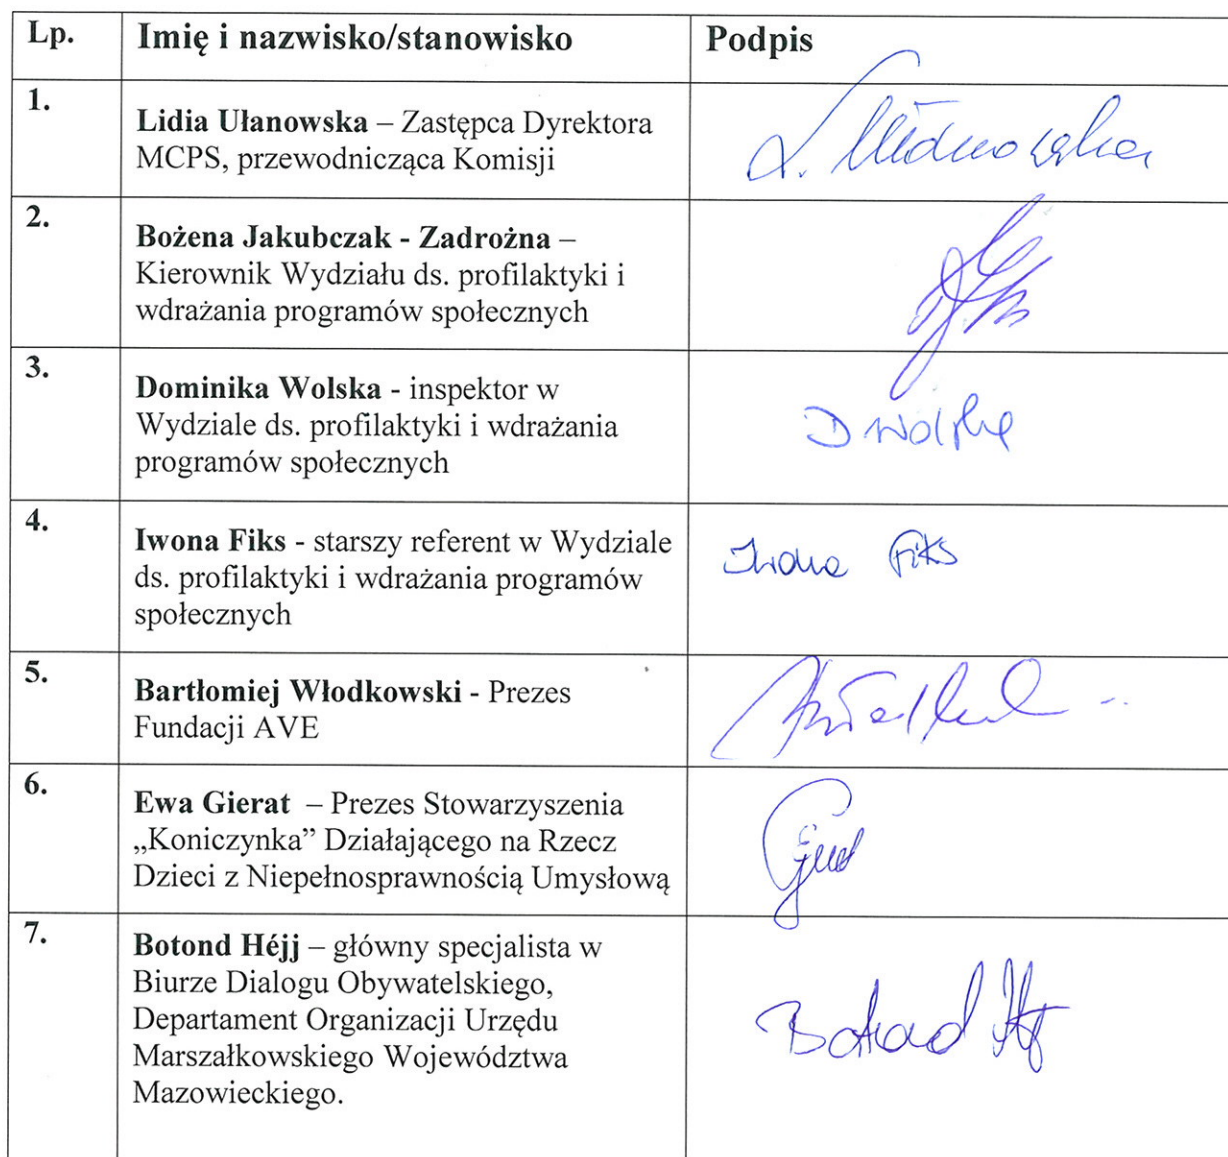 Lp. Imię i nazwisko/stanowisko Podpis
1.
Lidia Ułanowska – Zastępca Dyrektora
MCPS, przewodnicząca Komisji
L. Ułanowska
2.
Bożena Jakubczak - Zadrożna –
Kierownik Wydziału ds. profilaktyki i
wdrażania programów społecznych
3.
Dominika Wolska - inspektor w
Wydziale ds. profilaktyki i wdrażania
programów społecznych
D Wolska
4.
Iwona Fiks - starszy referent w Wydziale
ds. profilaktyki i wdrażania programów
społecznych
Iwona Fiks
5.
Bartłomiej Włodkowski - Prezes
Fundacji AVE
6.
Ewa Gierat – Prezes Stowarzyszenia
„Koniczynka” Działającego na Rzecz
Dzieci z Niepełnosprawnością Umysłową
7.
Botond Héjj – główny specjalista w
Biurze Dialogu Obywatelskiego,
Departament Organizacji Urzędu
Marszałkowskiego Województwa
Mazowieckiego.
Botond